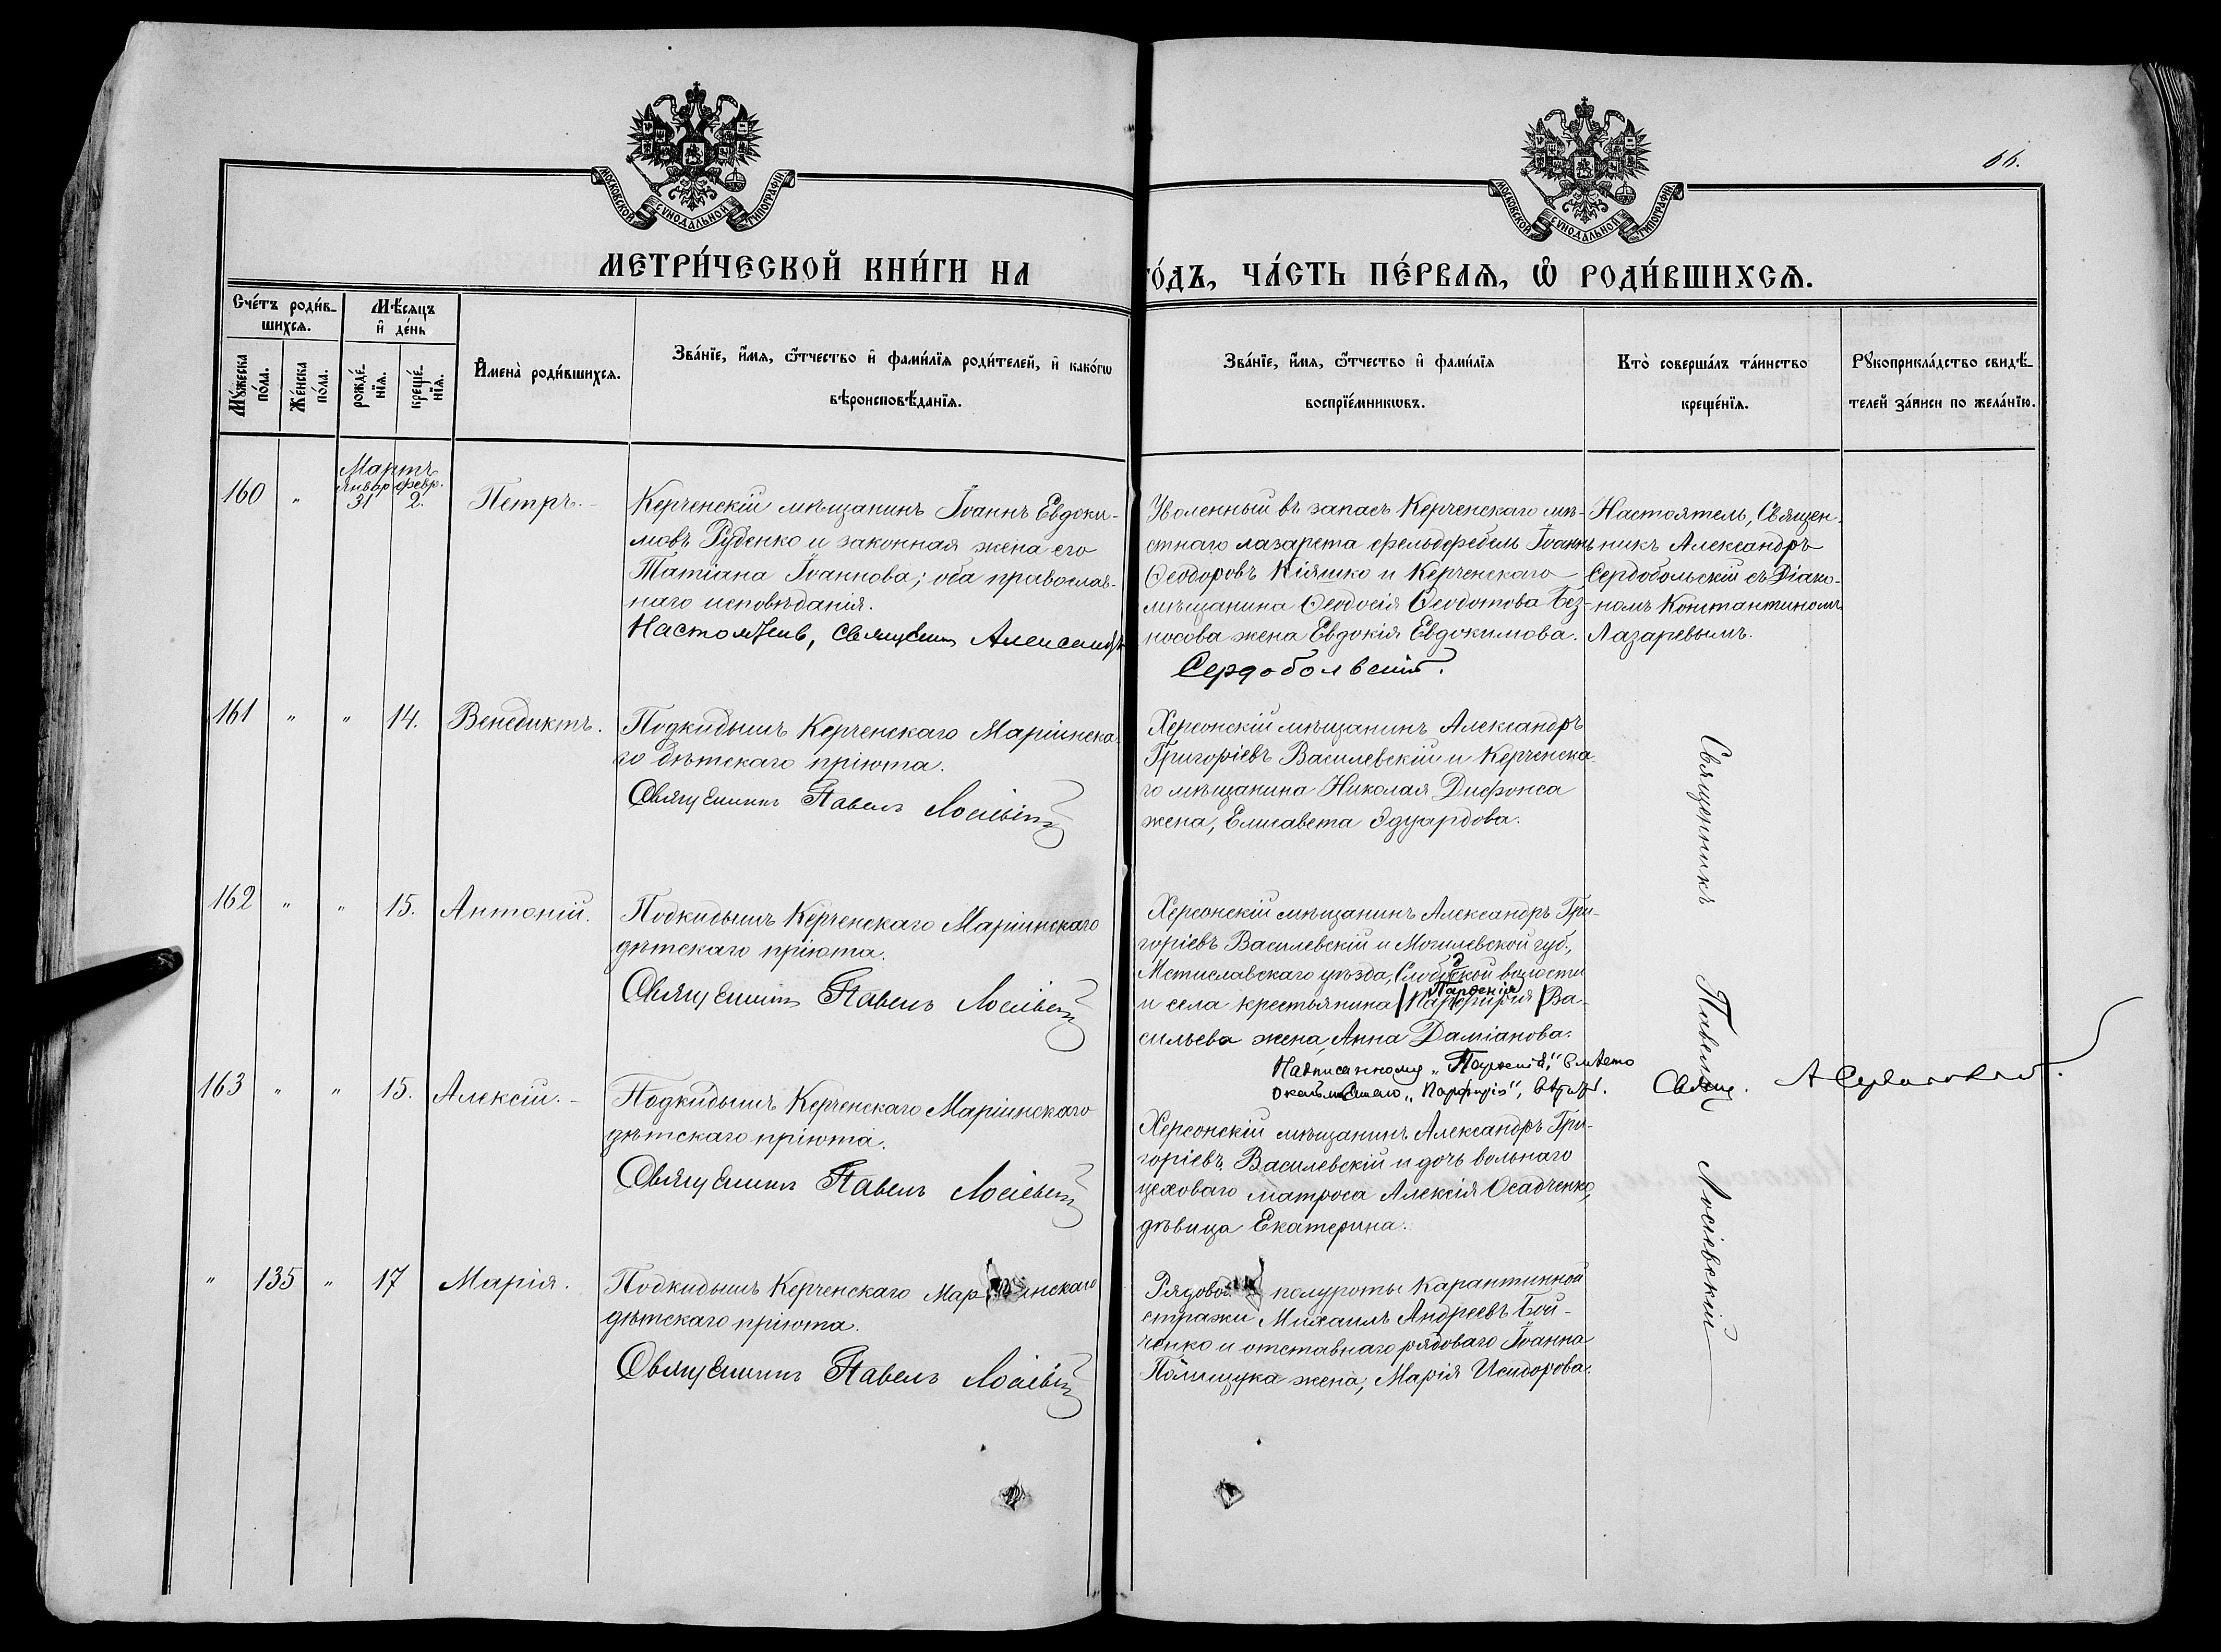 66.
МОСКОВСКОЙ СѴНОДАЛЬНОЙ ТИПОГРАФІИ
МОСКОВСКОЙ СѴНОДАЛЬНОЙ ТИПОГРАФІИ
МЕТРИ́ЧЕСКОЙ КНИ́ГИ НА
ГО́ДЪ, ЧА́СТЬ ПЕ́РВАѦ, Ѽ РОДИ́ВШИХСѦ.
Сче́тъ роди́в-
шихсѧ.
Мꙋ́жеска по́ла.
Же́нска по́ла.
Мѣ́сяцъ
и҆ де́нь
рожде́-
нїѧ.
креще́-
нїѧ.
И҆мена̀ роди́вшихсѧ.
Зва́нїе, и҆́мѧ, ѻ҆́тчество и҆ фами́лїѧ роди́телей, и҆ како́гѡ
вѣроисповѣ́данїѧ.
Зва́нїе, и҆́мѧ, ѻ҆́тчество и҆ фами́лїѧ
воспрїе́мникѡвъ.
Кто̀ соверша́лъ та́инство
креще́нїѧ.
Рꙋкоприкла́дство свидѣ́-
телей за́писи по жела́нїю.
Мартъ
Январ Февр.
160 " 31 2. Петръ.-
Керченскій мѣщанинъ Іоаннъ Евдоки-
мовъ Руденко и законная жена его
Татіана Іоаннова; оба православ-
наго исповѣданія.
Настоятель, Священникъ Александръ
Сердобольскій.
Уволенный въ запасъ Керченскаго мѣ-
стнаго лазарета фельдфебель Іоаннъ
Ѳеодоровъ Кіяшко и Керченскаго
мѣщанина Ѳеодосія Ѳеодотова Без-
носова жена Евдокія Евдокимова.
Настоятель, Священ-
никъ Александръ
Сердобольскій съ Діако-
номъ Константиномъ
Лазаревымъ.
161 " " 14. Венедиктъ.
Подкидышъ Керченскаго Маріинска-
го дѣтскаго пріюта.
Священникъ Павелъ Лосіевскій
Херсонскій мѣщанинъ Александръ
Григоріевъ Василевскій и Керченска-
го мѣщанина Николая Дифонса
жена, Елисавета Эдуардова.
162 " " 15. Антоній.
Подкидышъ Керченскаго Маріинскаго
дѣтскаго пріюта.
Священникъ Павелъ Лосіевскій
Херсонскій мѣщанинъ Александръ Гри-
горіевъ Василевскій и Могилевской губ.,
Мстиславскаго уѣзда, Слободской волости
Парѳенія
и села крестьянина Порфирія Ва-
сильева жена, Анна Даміанова.
Надписанному "Парѳенія", вмѣсто
"Порфирія", вѣрить.
Свящ. А Сердобольскій.
163 " " 15. Алексій.-
Подкидышъ Керченскаго Маріинскаго
дѣтскаго пріюта.
Священникъ Павелъ Лосіевскій
Херсонскій мѣщанинъ Александръ Гри-
горіевъ Василевскій и дочь вольнаго
цеховаго матроса Алексія Осадченко,
дѣвица Екатерина.
" 135 " 17 Марія.
Подкидышъ Керченскаго Маріинскаго
дѣтскаго пріюта.
Священникъ Павелъ Лосіевскій
Рядовой полуроты Карантинной
стражи Михаилъ Андреевъ Бой-
ченко и отставнаго рядоваго Іоанна
Полищука жена, Марія Исидорова.
Священникъ Павелъ Лосіевскій